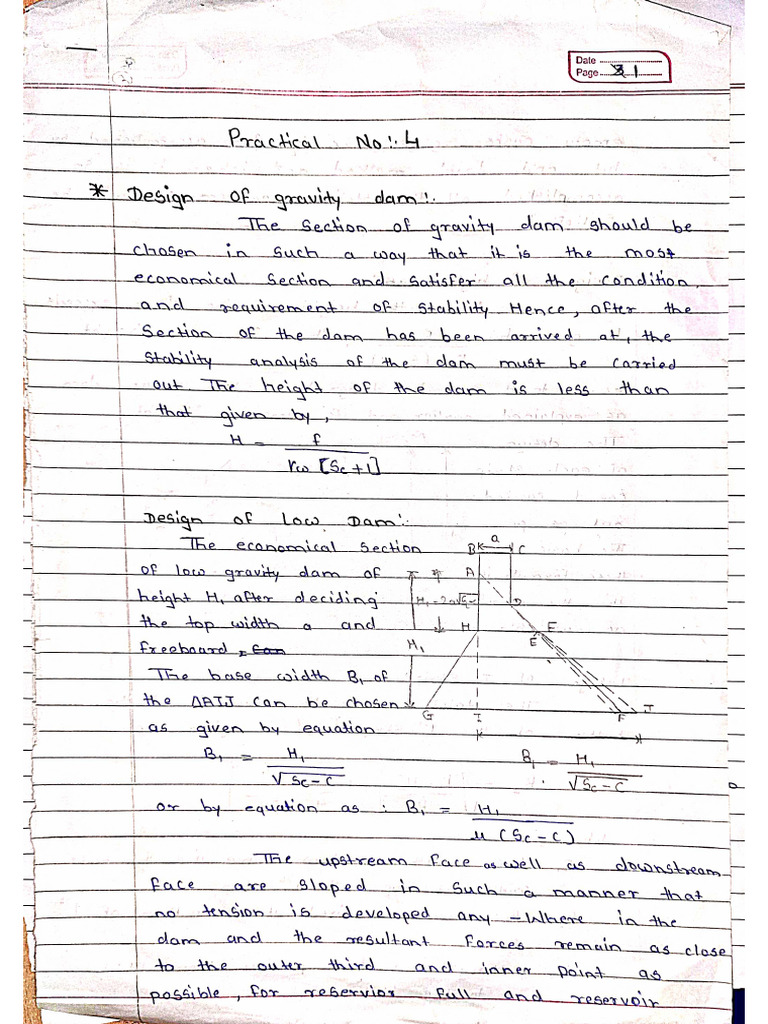 Date
Page 31
Practical No:. 4
* Design of gravity dam:.
The section of gravity dam should be
chosen in such a way that it is the most
economical section and satisfer all the condition
and requirement of stability Hence, after the
section of the dam has been arrived at, the
stability analysis of the dam must be carried
out The height of the dam is less than
that given by,
H = f / rω [Sc+1]
Design of Low Dam:.
The economical section
of low gravity dam of
height H, after deciding
the top width a and
freeboard,
The base width B₁ of
the ΔAIJ can be chosen
as given by equation
a
B C
A
H₁ = 2a√Sc-c
D
H E
E
H₁
G I F J
B₁ = H₁ / √Sc-C
B₁ = H₁ / √Sc-C
or by equation as : B₁ = H₁ / μ (Sc-C)
The upstream face as well as downstream
face are sloped in such a manner that
no tension is developed any -Where in the
dam and the resultant forces remain as close
to the outer third and inner point as
possible, for reservior full and reservoir